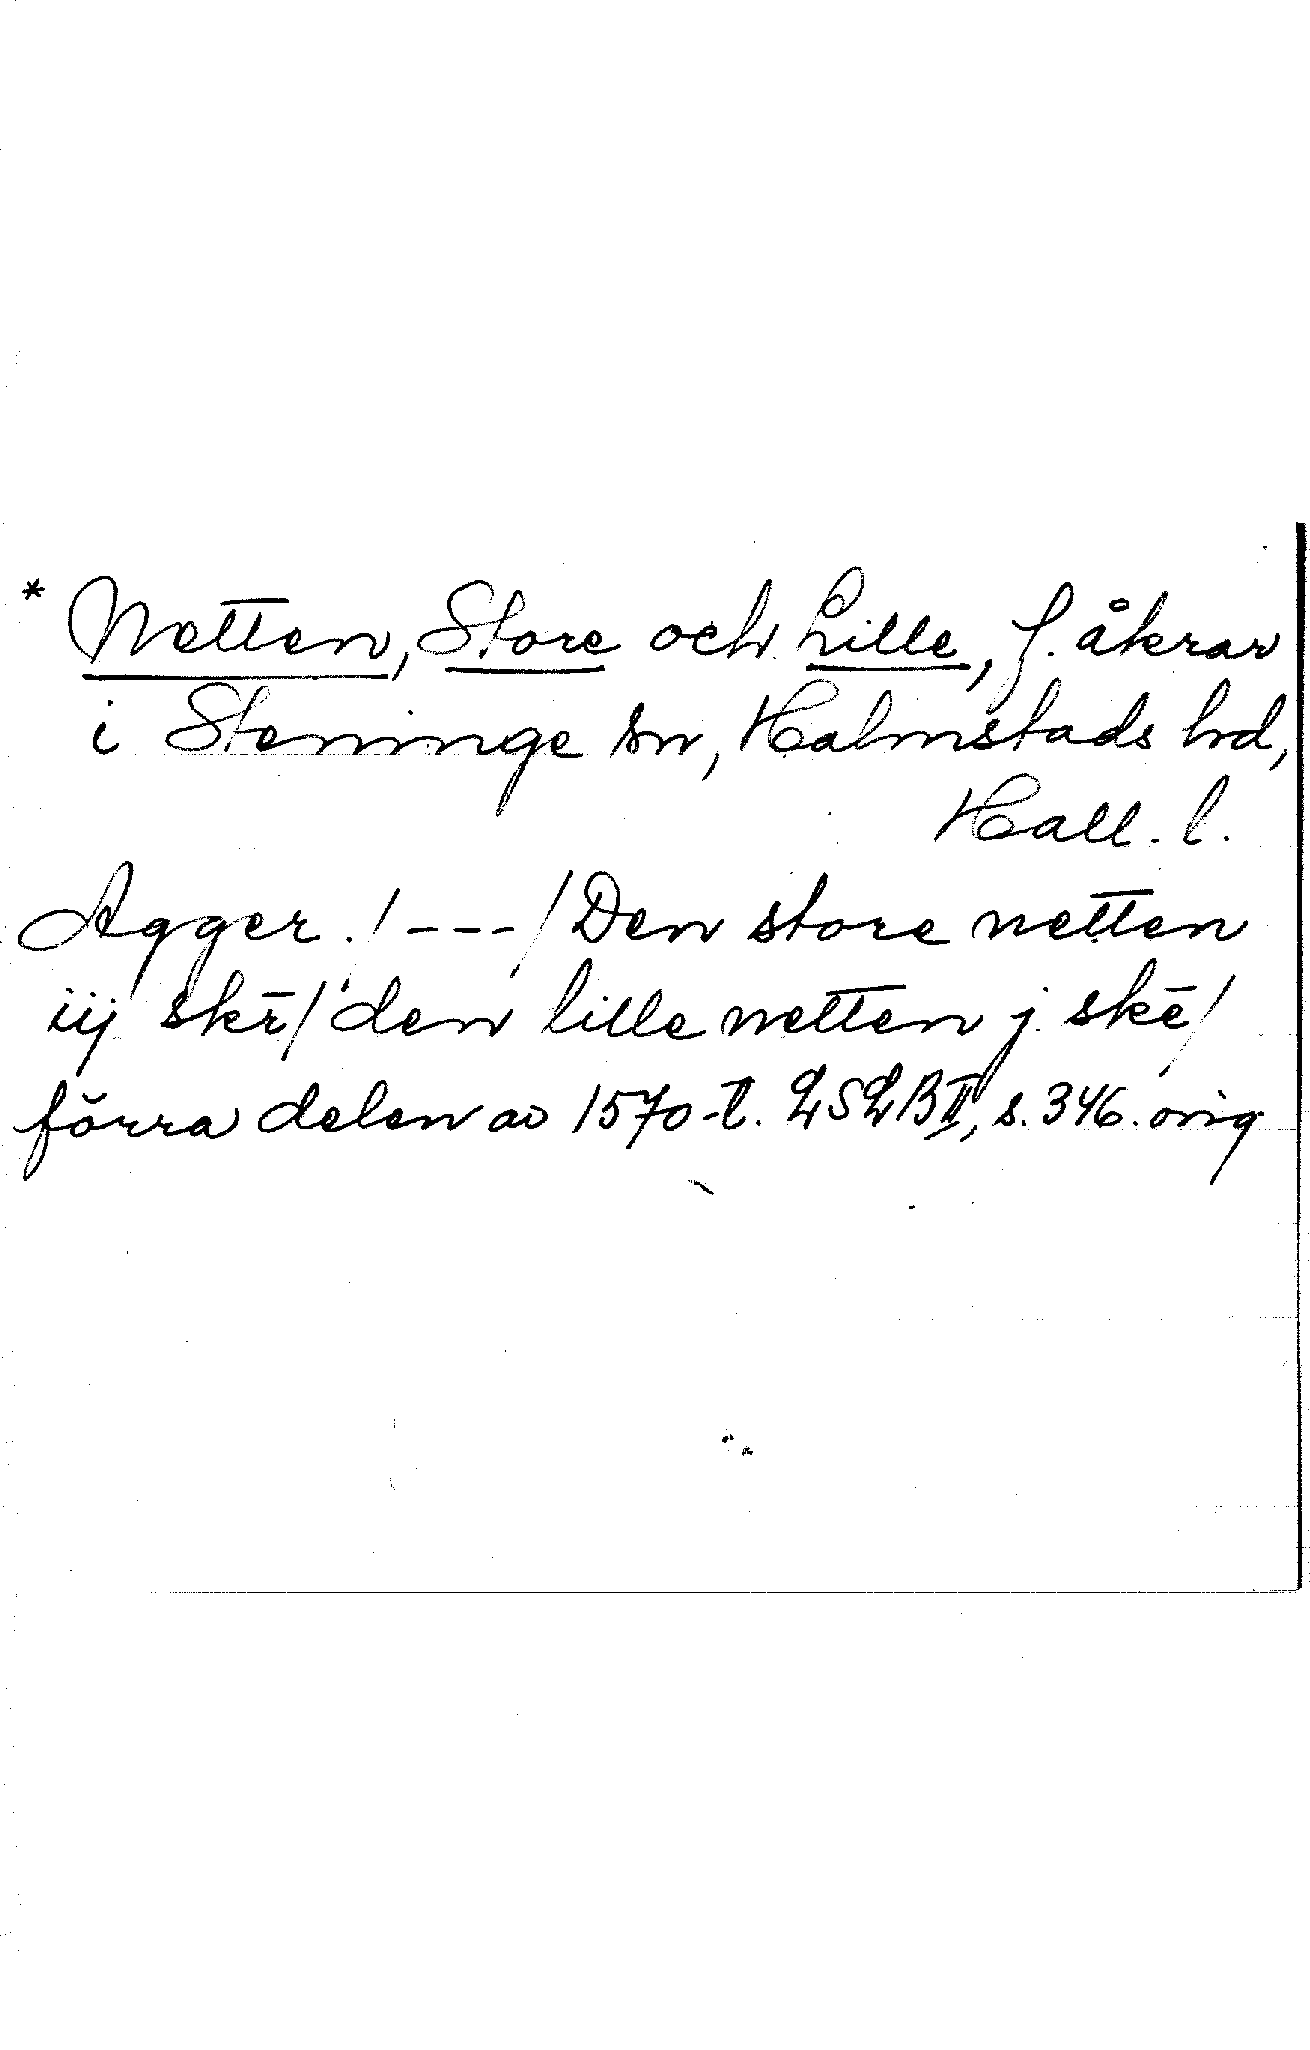 * Netten, Store och Lille, f. åkrar
i Steninge sn, Halmstads hd,
Hall. l.
Agger. / --- / Den store netten
iij skē / den lille netten j skē /
förra delen av 1570-t. LSLB II, s. 346. orig